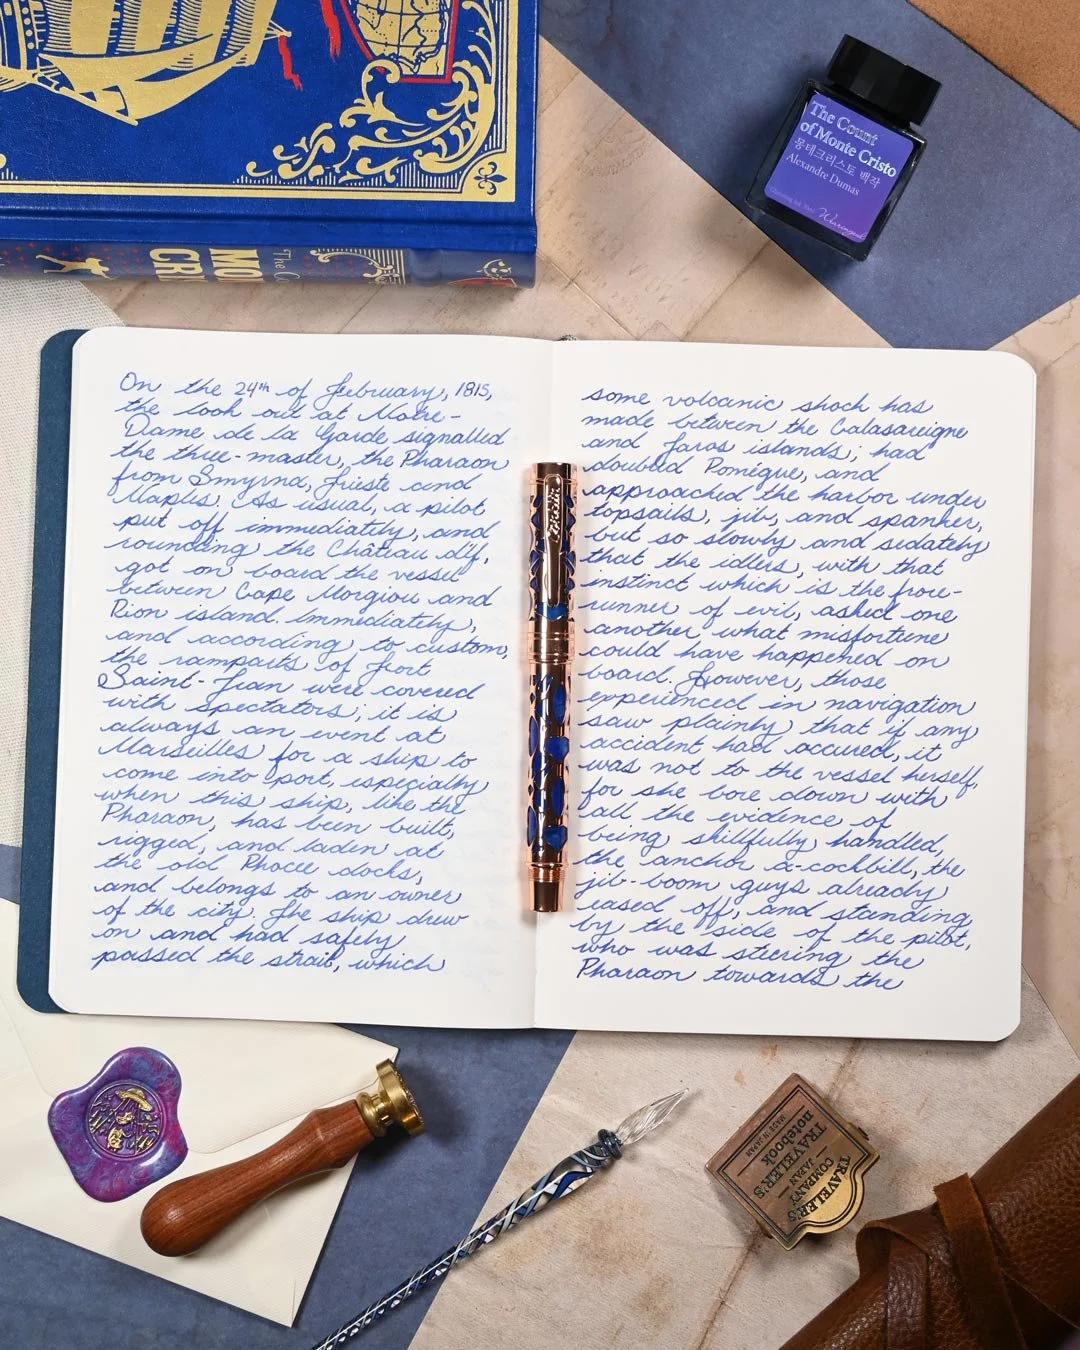 The Count
of Monte Cristo
몽테크리스토 백작
Alexandre Dumas
The Co
MO
CRI
On the 24th of February, 1815,
the look out at Notre-
Dame de la Garde signalled
the three-master, the Pharaon
from Smyrna, Trieste and
Naples. As usual, a pilot
put off immediately, and
rounding the Château d'if,
got on board the vessel
between Cape Morgiou and
Rion island. Immediately,
and according to custom,
the ramparts of Fort
Saint-Jean were covered
with spectators; it is
always an event at
Marseilles for a ship to
come into port, especially
when this ship, like the
Pharaon, has been built,
rigged, and laden at
the old Phocee docks,
and belongs to an owner
of the city. The ship drew
on and had safely
passed the strait, which
some volcanic shock has
made between the Calasareigne
and Jaros islands; had
doubled Pomégue, and
approached the harbor under
topsails, jib, and spanker,
but so slowly and sedately
that the idlers, with that
instinct which is the fore-
runner of evil, asked one
another what misfortune
could have happened on
board. However, those
experienced in navigation
saw plainly that if any
accident had accured, it
was not to the vessel herself,
for she bore down with
all the evidence of
being skillfully handled,
the anchor a-cockbill, the
jib-boom guys already
eased off, and standing
by the side of the pilot,
who was steering the
Pharaon towards the
TRAVELER'S
notebook
MADE IN JAPAN
TRAVELER'S
COMPANY
JAPAN
TRAVELER'S